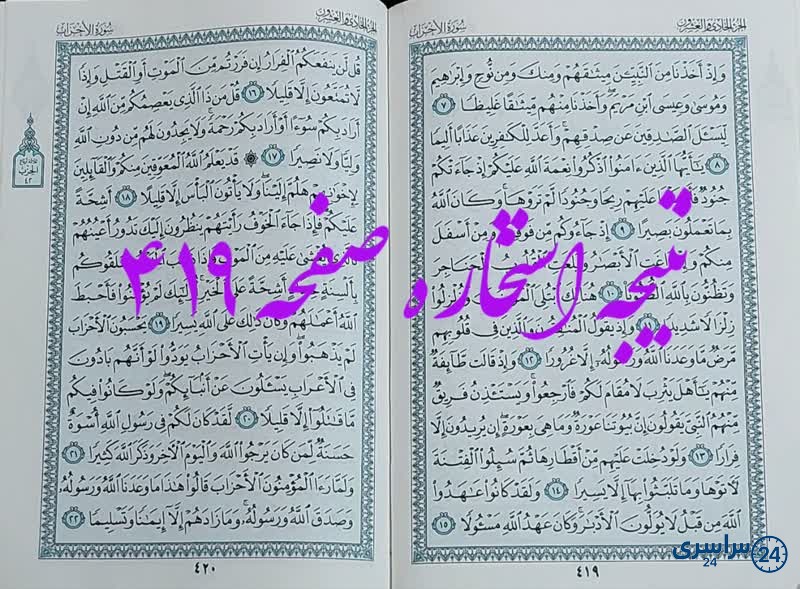 الجزء الحادي والعشرون سورة الأحزاب
وَإِذْ أَخَذْنَا مِنَ ٱلنَّبِيِّـۧنَ مِيثَٰقَهُمْ وَمِنكَ وَمِن نُّوحٍ وَإِبْرَٰهِيمَ
وَمُوسَىٰ وَعِيسَى ٱبْنِ مَرْيَمَ وَأَخَذْنَا مِنْهُم مِّيثَٰقًا غَلِيظًا ٧
لِّيَسْـَٔلَ ٱلصَّٰدِقِينَ عَن صِدْقِهِمْ وَأَعَدَّ لِلْكَٰفِرِينَ عَذَابًا أَلِيمًا
٨ يَٰٓأَيُّهَا ٱلَّذِينَ ءَامَنُوا۟ ٱذْكُرُوا۟ نِعْمَةَ ٱللَّهِ عَلَيْكُمْ إِذْ جَآءَتْكُمْ
جُنُودٌ عَلَيْهِمْ رِيحًا وَجُنُودًا لَّمْ تَرَوْهَا وَكَانَ ٱللَّهُ
بِمَا تَعْمَلُونَ بَصِيرًا ٩ إِذْ جَآءُوكُم مِّن فَوْقِكُمْ وَمِنْ أَسْفَلَ
مِنكُمْ وَإِذْ زَاغَتِ ٱلْأَبْصَٰرُ وَبَلَغَتِ ٱلْقُلُوبُ ٱلْحَنَاجِرَ
وَتَظُنُّونَ بِٱللَّهِ ٱلظُّنُونَا۠ ١٠ هُنَالِكَ ٱبْتُلِىَ وَزُلْزِلُوا۟
زِلْزَالًا شَدِيدًا ١١ وَإِذْ يَقُولُ ٱلْمُنَٰفِقُونَ وَٱلَّذِينَ فِى قُلُوبِهِم
مَّرَضٌ مَّا وَعَدَنَا ٱللَّهُ وَرَسُولُهُۥٓ إِلَّا غُرُورًا ١٢ وَإِذْ قَالَت طَّآئِفَةٌ
مِّنْهُمْ يَٰٓأَهْلَ يَثْرِبَ لَا مُقَامَ لَكُمْ فَٱرْجِعُوا۟ وَيَسْتَـْٔذِنُ فَرِيقٌ
مِّنْهُمُ ٱلنَّبِىَّ يَقُولُونَ إِنَّ بُيُوتَنَا عَوْرَةٌ وَمَا هِىَ بِعَوْرَةٍ إِن يُرِيدُونَ إِلَّا
فِرَارًا ١٣ وَلَوْ دُخِلَتْ عَلَيْهِم مِّنْ أَقْطَارِهَا ثُمَّ سُئِلُوا۟ ٱلْفِتْنَةَ
لَـَٔاتَوْهَا وَمَا تَلَبَّثُوا۟ بِهَآ إِلَّا يَسِيرًا ١٤ وَلَقَدْ كَانُوا۟ عَٰهَدُوا۟
ٱللَّهَ مِن قَبْلُ لَا يُوَلُّونَ ٱلْأَدْبَٰرَ وَكَانَ عَهْدُ ٱللَّهِ مَسْـُٔولًا ١٥
٤١٩
الجزء الحادي والعشرون سورة الأحزاب
قُل لَّن يَنفَعَكُمُ ٱلْفِرَارُ إِن فَرَرْتُم مِّنَ ٱلْمَوْتِ أَوِ ٱلْقَتْلِ وَإِذًا
لَّا تُمَتَّعُونَ إِلَّا قَلِيلًا ١٦ قُلْ مَن ذَا ٱلَّذِى يَعْصِمُكُم مِّنَ ٱللَّهِ إِنْ
أَرَادَ بِكُمْ سُوٓءًا أَوْ أَرَادَ بِكُمْ رَحْمَةً وَلَا يَجِدُونَ لَهُم مِّن دُونِ ٱللَّهِ
وَلِيًّا وَلَا نَصِيرًا ١٧ ۞ قَدْ يَعْلَمُ ٱللَّهُ ٱلْمُعَوِّقِينَ مِنكُمْ وَٱلْقَآئِلِينَ
لِإِخْوَٰنِهِمْ هَلُمَّ إِلَيْنَا وَلَا يَأْتُونَ ٱلْبَأْسَ إِلَّا قَلِيلًا ١٨ أَشِحَّةً
عَلَيْكُمْ فَإِذَا جَآءَ ٱلْخَوْفُ رَأَيْتَهُمْ يَنظُرُونَ إِلَيْكَ تَدُورُ أَعْيُنُهُمْ
كَٱلَّذِى يُغْشَىٰ عَلَيْهِ مِنَ ٱلْمَوْتِ فَإِذَا ذَهَبَ سَلَقُوكُم
بِأَلْسِنَةٍ أَشِحَّةً عَلَى ٱلْخَيْرِ أُو۟لَٰٓئِكَ لَمْ يُؤْمِنُوا۟ فَأَحْبَطَ
ٱللَّهُ أَعْمَٰلَهُمْ وَكَانَ ذَٰلِكَ عَلَى ٱللَّهِ يَسِيرًا ١٩ يَحْسَبُونَ ٱلْأَحْزَابَ
لَمْ يَذْهَبُوا۟ وَإِن يَأْتِ ٱلْأَحْزَابُ يَوَدُّوا۟ لَوْ أَنَّهُم بَادُونَ
فِى ٱلْأَعْرَابِ يَسْـَٔلُونَ عَنْ أَنۢبَآئِكُمْ وَلَوْ كَانُوا۟ فِيكُم
مَّا قَٰتَلُوٓا۟ إِلَّا قَلِيلًا ٢٠ لَّقَدْ كَانَ لَكُمْ فِى رَسُولِ ٱللَّهِ أُسْوَةٌ
حَسَنَةٌ لِّمَن كَانَ يَرْجُوا۟ ٱللَّهَ وَٱلْيَوْمَ ٱلْءَاخِرَ وَذَكَرَ ٱللَّهَ كَثِيرًا ٢١
وَلَمَّا رَءَا ٱلْمُؤْمِنُونَ ٱلْأَحْزَابَ قَالُوا۟ هَٰذَا مَا وَعَدَنَا ٱللَّهُ وَرَسُولُهُۥ
وَصَدَقَ ٱللَّهُ وَرَسُولُهُۥ وَمَا زَادَهُمْ إِلَّآ إِيمَٰنًا وَتَسْلِيمًا ٢٢
٤٢٠
الحزب
٤٢
نتیجه استخاره صفحه ۴۱۹
سراسری
24
24